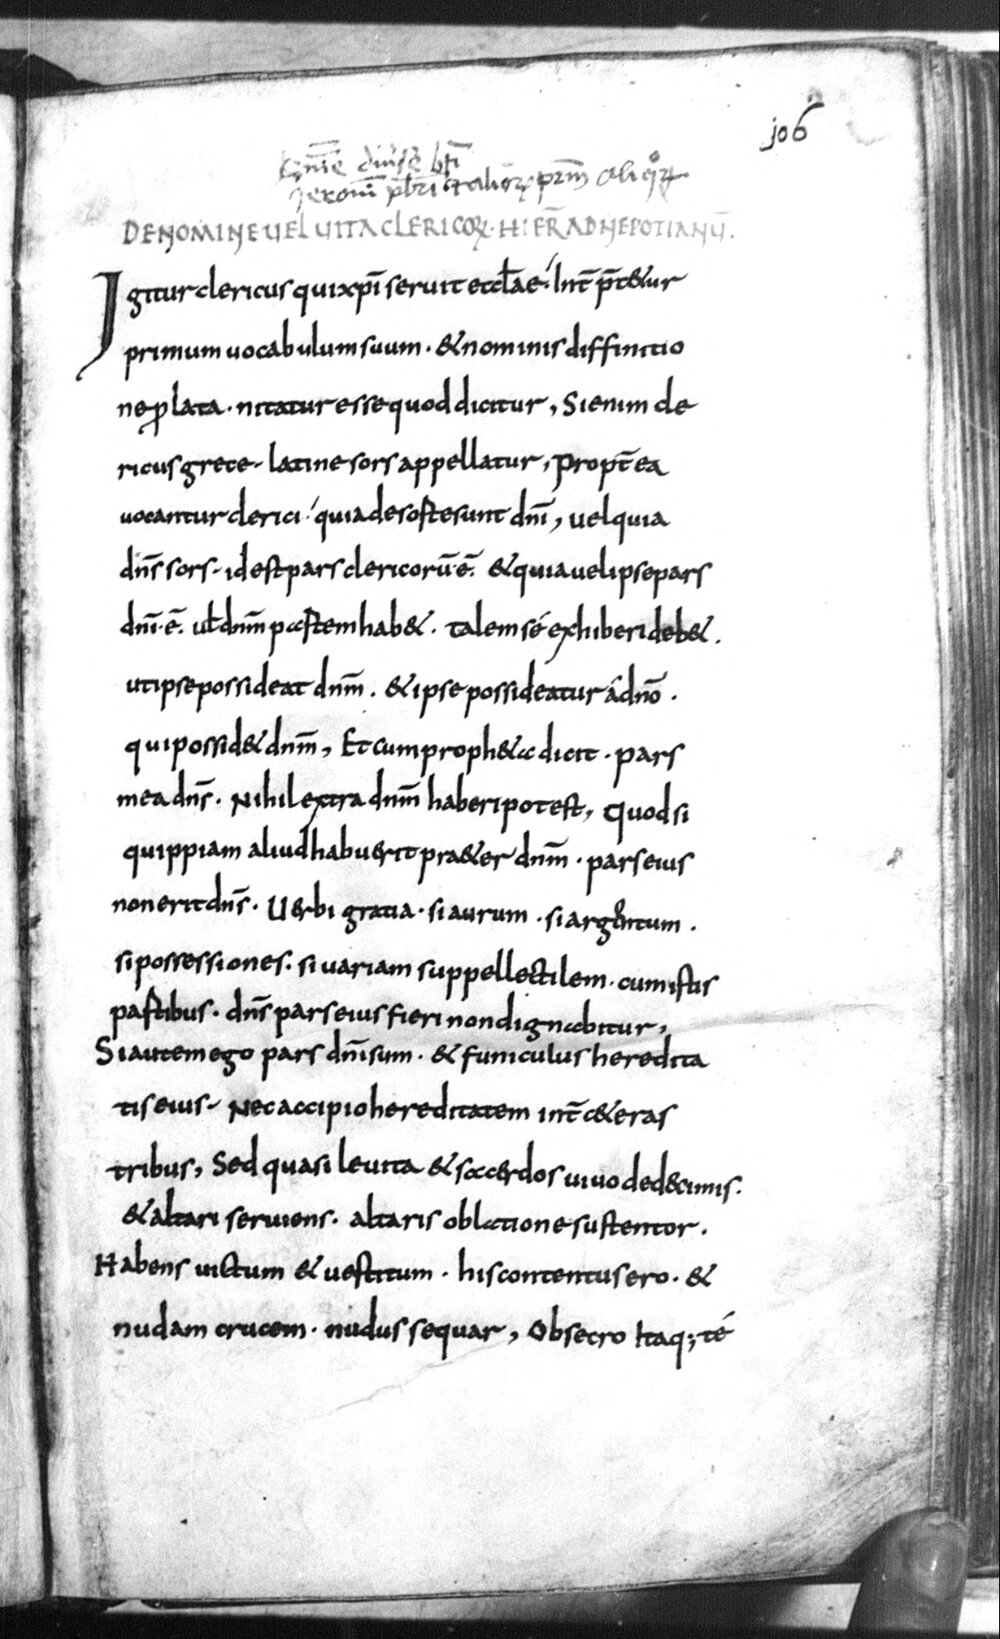 jo6
Jeronimi pbri & alioꝝ prm aliqꝝ
DENOMINE UEL UITA CLERICOꝝ · HIER̄ AD NEPOTIANŪ.
Igitur clericus qui xp̄i seruit eccl̄ae · Int̄p̄t&ur
primum uocabulum suum · & nominis diffinitio
ne ꝓlata · nitatur esse quod dicitur, Si enim cle
ricus grece · latine sors appellatur, Propt̄ea
uocantur clerici · quia de sorte sunt dn̄i, uel quia
dn̄s sors · id est pars clericorū · ē. & quia uel ipse pars
dn̄i · ē. ul̄ dn̄m partem hab&. talem sé exhiberi deb&.
ut ipse possideat dn̄m. & ipse possideatur á dn̄o.
qui possid& dn̄m, Et cum proph&a dicit · pars
mea dn̄s. Nihil extra dn̄m haberi potest, Quod si
quippiam aliud habuerit pra&er dn̄m · pars eius
non erit dn̄s. Uerbi gratia · si aurum · si argentum.
si possessiones. si uariam suppellectilem · cum istis
partibus · dn̄s pars eius fieri non dignabitur,
Si autem ego pars dn̄i sum · & funiculus heredita
tis eius · Nec accipio hereditatem int̄ c&eras
tribus, Sed quasi leuita & sacerdos uiuo de decimis.
& altari seruiens. altaris oblatione sustentor.
Habens uictum & uestitum · his contentus ero · &
nudam crucem · nudus sequar, Obsecro itaq; té